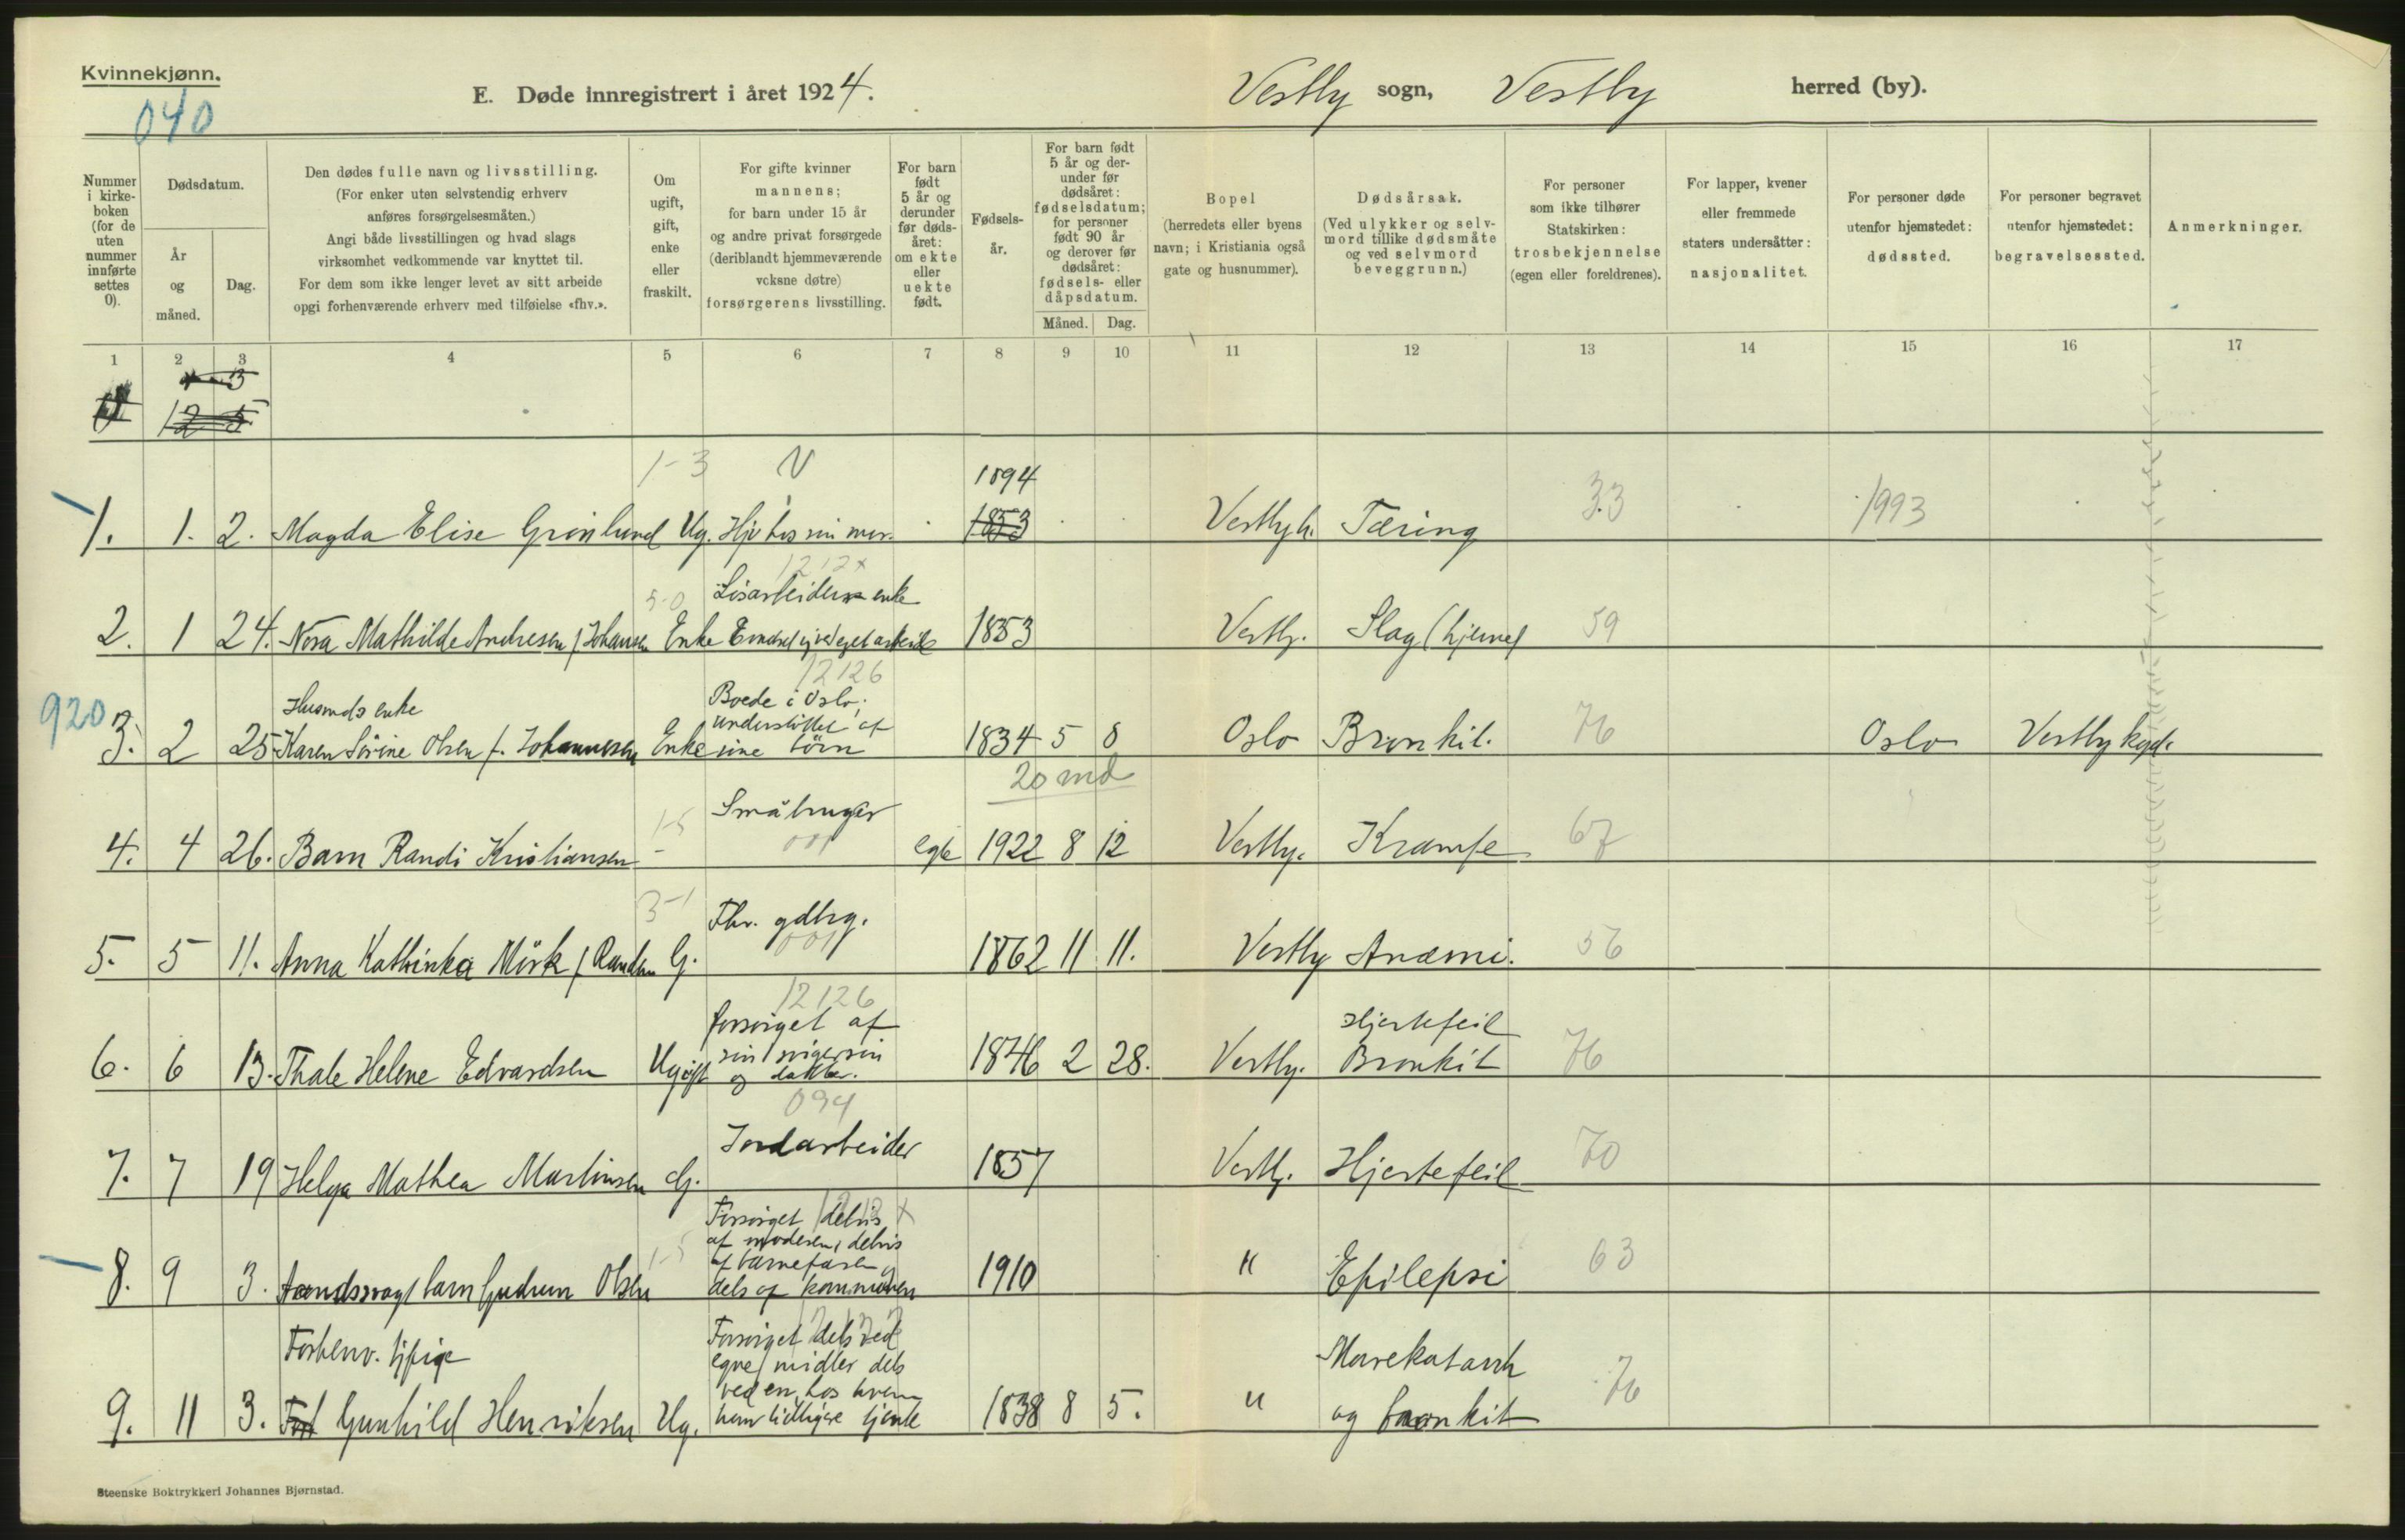 Kvinnekjønn.
040
E. Døde innregistrert i året 1924.
Vestby sogn, Vestby herred (by).
Nummer i kirkeboken (for de uten nummer innførte settes 0).
Dødsdatum.
År og måned.
Dag.
Den dødes fulle navn og livsstilling.
(For enker uten selvstendig erhverv
anføres forsørgelsesmåten.)
Angi både livsstillingen og hvad slags
virksomhet vedkommende var knyttet til.
For dem som ikke lenger levet av sitt arbeide
opgi forhenværende erhverv med tilføielse «fhv.».
Om ugift, gift, enke eller fraskilt.
For gifte kvinner
mannens;
for barn under 15 år
og andre privat forsørgede
(deriblandt hjemmeværende
voksne døtre)
forsørgerens livsstilling.
For barn født 5 år og derunder før dødsåret: om ekte eller uekte født.
Fødselsår.
For barn født 5 år og derunder før dødsåret: fødselsdatum; for personer født 90 år og derover før dødsåret: fødsels- eller dåpsdatum.
Måned. Dag.
Bopel
(herredets eller byens
navn; i Kristiania også
gate og husnummer).
Dødsårsak.
(Ved ulykker og selvmord tillike dødsmåte og ved selvmord beveggrunn.)
For personer
som ikke tilhører
Statskirken:
trosbekjennelse
(egen eller foreldrenes).
For lapper, kvener
eller fremmede
staters undersåtter:
nasjonalitet.
For personer døde
utenfor hjemstedet:
dødssted.
For personer begravet
utenfor hjemstedet:
begravelsessted.
Anmerkninger.
1 2 3 4 5 6 7 8 9 10 11 12 13 14 15 16 17
12 5
1-3 V 1894
1. 1. 2. Magda Elise Grönlund Ug. Hjv hos sin mor. 1853 Vestby h. Tæring 33 1993
5-0 Lösarbeiders enke
2. 1 24. Nora Mathilde Andresen f. Johansen Enke 1853 Vestby. Slag (hjerne) 59
12126
920 Husmds enke Boede i Oslo;
understöttet af
3. 2 25 Karen Sörine Olsen f. Johannesen Enke sine börn 1834 5 8 Oslo Bronkit. 76 Oslo Vestby kgd.
20 md
1-5 Småbruger
4. 4 26. Barn Randi Kristiansen - 001 egte 1922 8 12 Vestby. Krampe 67
3-1 Fhv. gdbrg.
5. 5 11. Anna Kathinka Mörk f. G. 001 1862 11 11. Vestby Anæmi. 56
12126
forsörget af Hjertefeil
6. 6 13. Thale Helene Edvardsen Ugift sin svigersön og datter. 1846 2 28. Vestby. Bronkit 76
094
Jordarbeider
7. 7 19 Helga Mathea Martinsen G. 1857 Vestby. Hjertefeil 70
Forsörget delvis
af moderen, delvis
1-5 af barnefaren og
8. 9 3. Aandssvagt barn Gudrun Olsen dels af kommunen 1910 " Epilepsi 63
Forhenv. tjpige Forsörget dels ved
egne midler dels Mavekatarrh
ved en, hos hvem
9. 11 3. Gunhild Henriksen Ug. hun tidligere tjente 1838 8 5. " og bronkit 76
Steenske Boktrykkeri Johannes Bjørnstad.